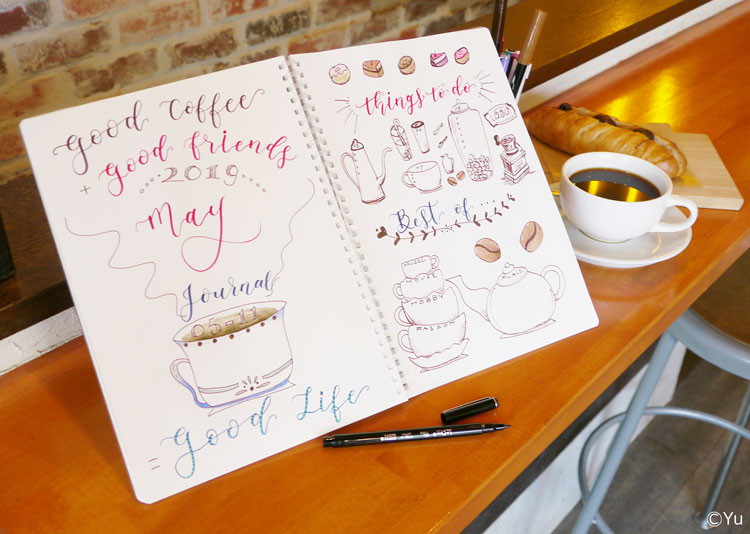 Good Coffee
+ Good friends
2019
May
Journal
05-11
= Good Life
things to do
Best of...
MUSIC
MOVIE
HOBBY
©Yu